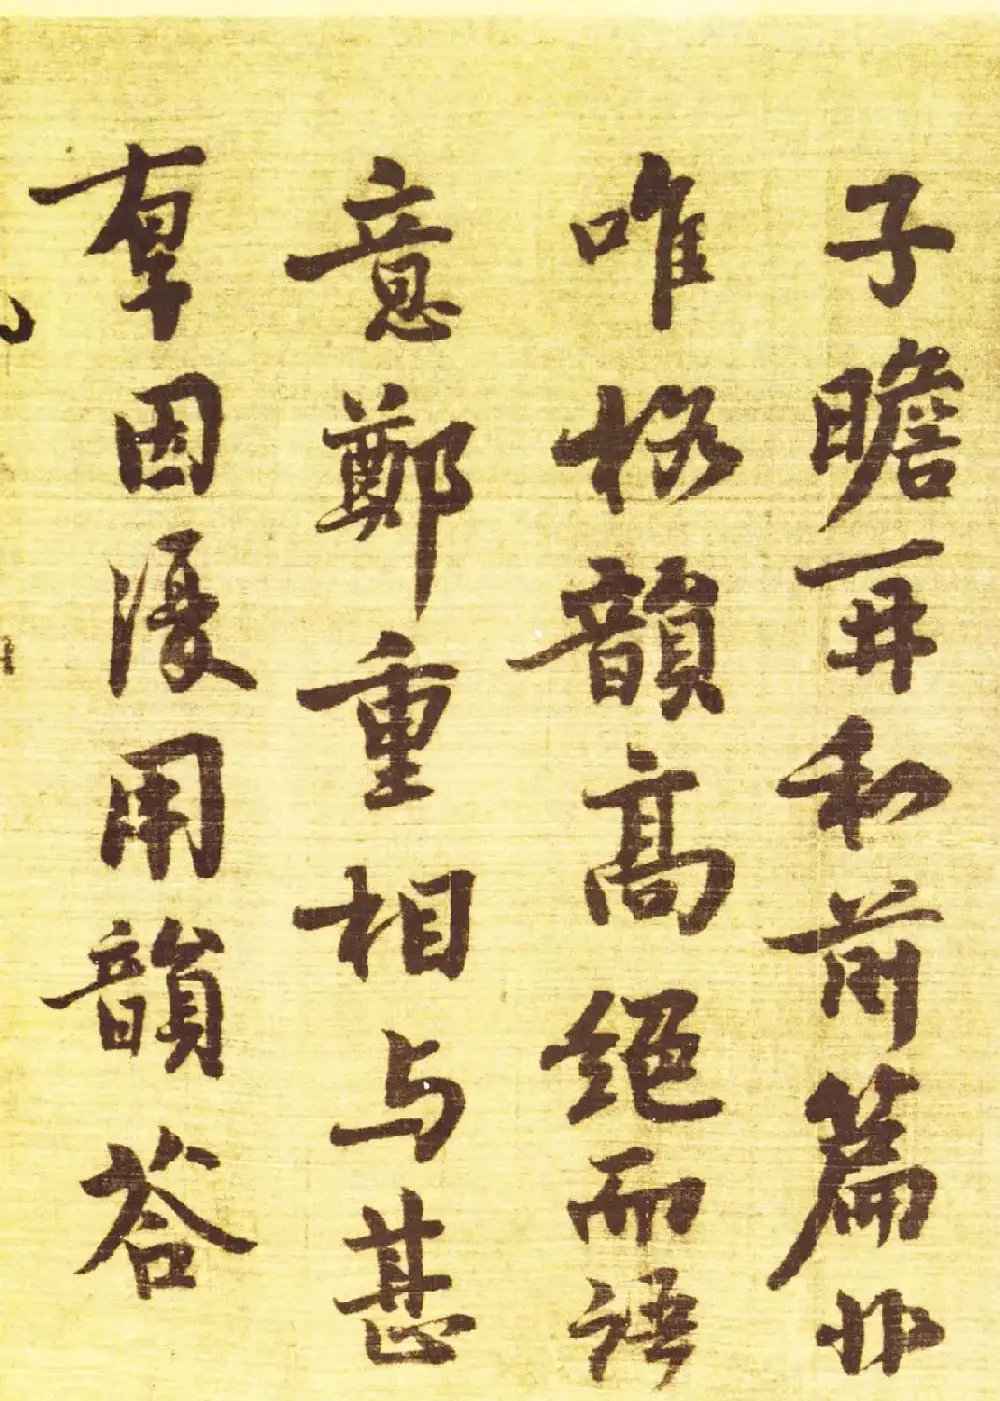 子瞻再和前篇非
唯格韻高絕而語
意鄭重相与甚
厚因復用韻答